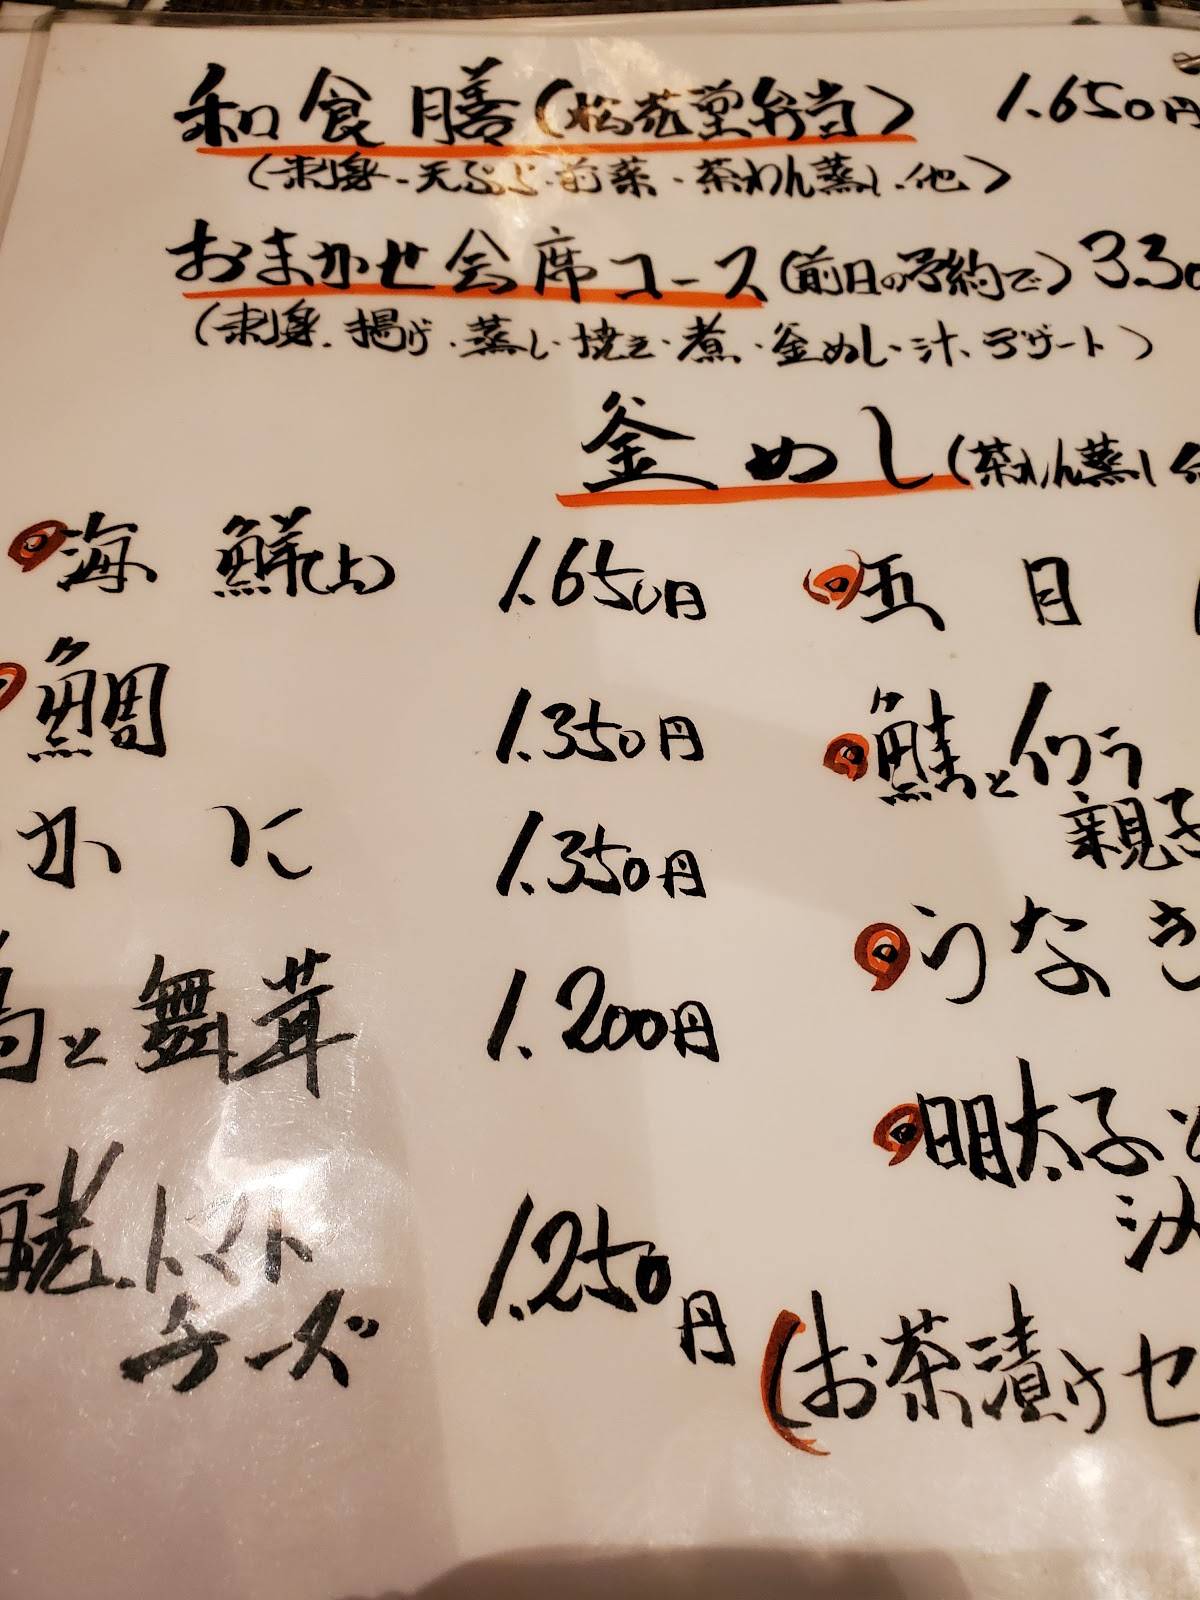 和食膳(松花堂弁当) 1.650円
(刺身・天ぷら・前菜・茶わん蒸し・他)
おまかせ会席コース(前日の予約で) 3.30
(刺身・揚げ・蒸し・焼き・煮・釜めし・汁・デザート)
釜めし(茶わん蒸し
海鮮 1.650円
五目
鯛 1.350円
鮭とイクラ
親子
かに 1.350円
うなぎ
と舞茸 1.200円
明太子と
トマト
チーズ 1.250円
(お茶漬けセ